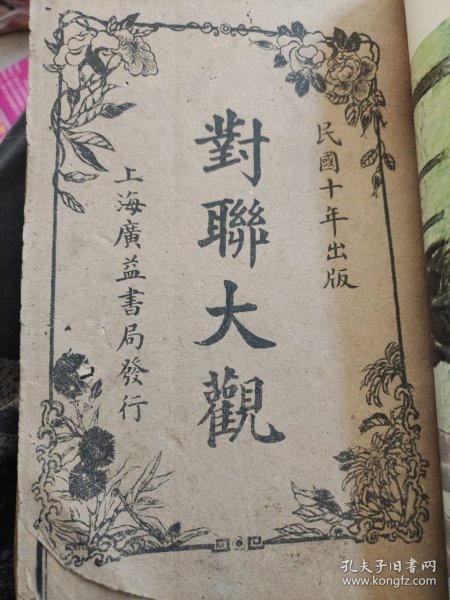 民國十年出版
對聯大觀
上海廣益書局發行
孔夫子旧书网
www.kongfz.com